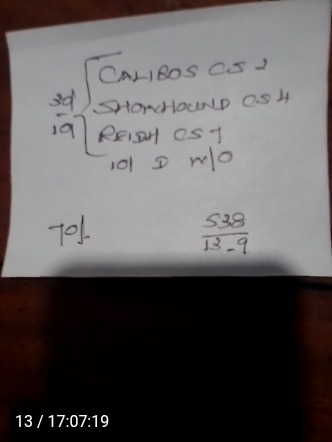 CALIBOS CS 2
3d SHOWHOUND CS 4
19 REIDH CS 7
10/ D W/O
70/-
538
13-9
13 / 17:07:19